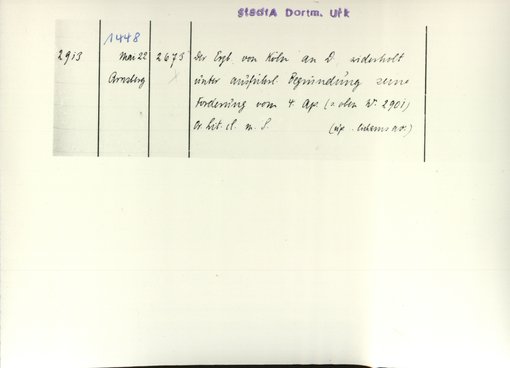 StadtA Dortm. Urk
1448
2913 Mai 22 2673 Der Erzb. von Köln an D. widerholt
Arnsberg unter ausführl. Begründung seine
Forderung vom 4 Apr (s. oben Nr. 2901)
Or. lit. cl. m. S.